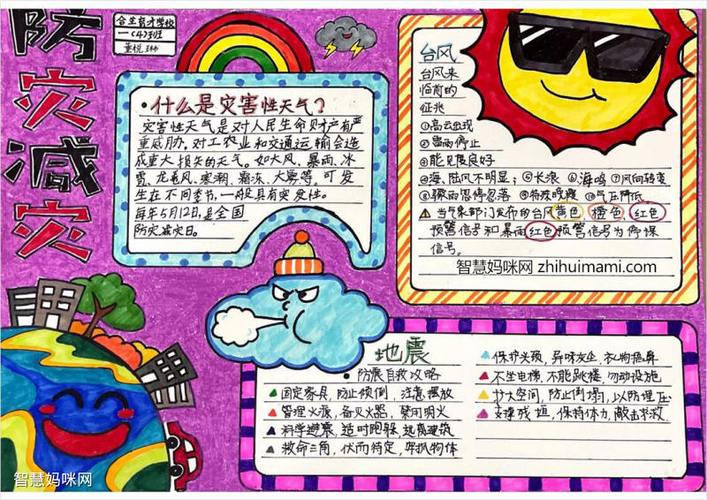 防灾减灾
合生育才学校
一(4)班
什么是灾害性天气?
灾害性天气是对人民生命财产有严
重威胁,对工农业和交通运输会造
成重大损失的天气。如大风、暴雨、冰
雹、龙卷风、寒潮、霜冻、大雾等。可发
生在不同季节,一般具有突发性。
每年5月12日是全国
防灾减灾日。
台风
台风来
临前的
征兆
①高云出现
②雷雨停止
③能见度良好
④海、陆风不明显;⑤长浪 ⑥海鸣 ⑦风向转变
⑧骤雨忽停忽落 ⑨特殊晚霞 ⑩气压降低
当气象部门发布的台风黄色 橙色 红色
预警信号和暴雨红色预警信号为停课
信号。
智慧妈咪网 zhihuimami.com
地震
防震自救攻略
固定家具,防止倾倒,注意摆放
管理火源,备灭火器,禁用明火
科学避震,适时跑躲,远离建筑
救命三角,伏而待定,牢抓物体
保护头颈,异味灰尘,衣物捂鼻
不坐电梯,不能跳楼,勿动设施
扩大空间,防止倒塌,以防埋压
支撑残垣,保持体力,敲击求救
智慧妈咪网